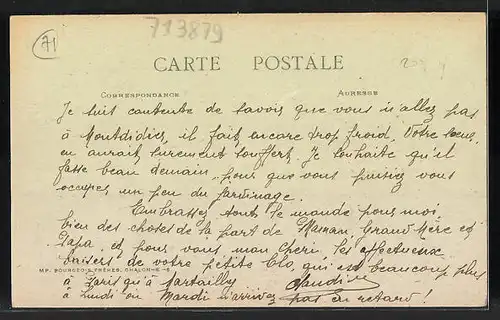 713879
71
CARTE POSTALE
CORRESPONDANCE ADRESSE
Je suis contente de savoir que vous n'allez pas
à Montdidier, il fait encore trop froid. Votre sœur
en aurait sûrement souffert. Je souhaite qu'il
fasse beau demain pour que vous puissiez vous
occuper un peu du jardinage.
Embrassez tout le monde pour moi,
bien des choses de la part de Maman, Grand Mère et
Papa, et pour vous mon chéri les affectueux
baisers de votre petite Clo, qui est beaucoup plus
MP. BOURGEOIS FRÈRES, CHALON-S-S
à Paris qu'à Martailly Claudine
à Lundi ou Mardi n'arrivez pas en retard!